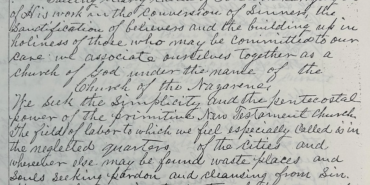 of His work in the conversion of Sinners, the
Sanctification of believers and the building up in
holiness of those who may be committed to our
care we associate ourselves together as a
Church of God under the name of the
Church of the Nazarene
We seek the Simplicity and the pentecostal
power of the primitive New Testament Church.
The field of labor to which we feel especially called is in
the neglected quarters of the Cities and
wherever else may be found waste places and
Souls seeking pardon and cleansing from Sin.